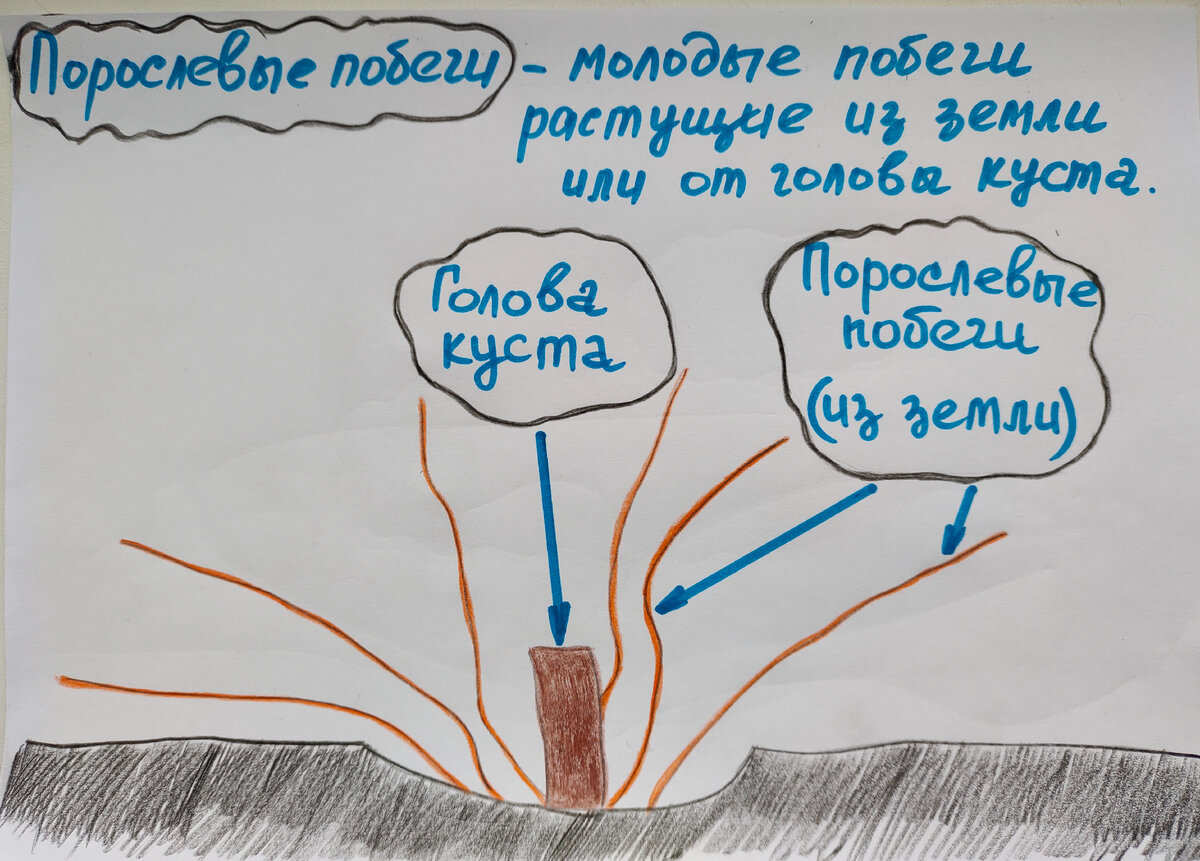 Порослевые побеги – молодые побеги
растущие из земли
или от головы куста.
Голова
куста
Порослевые
побеги
(из земли)